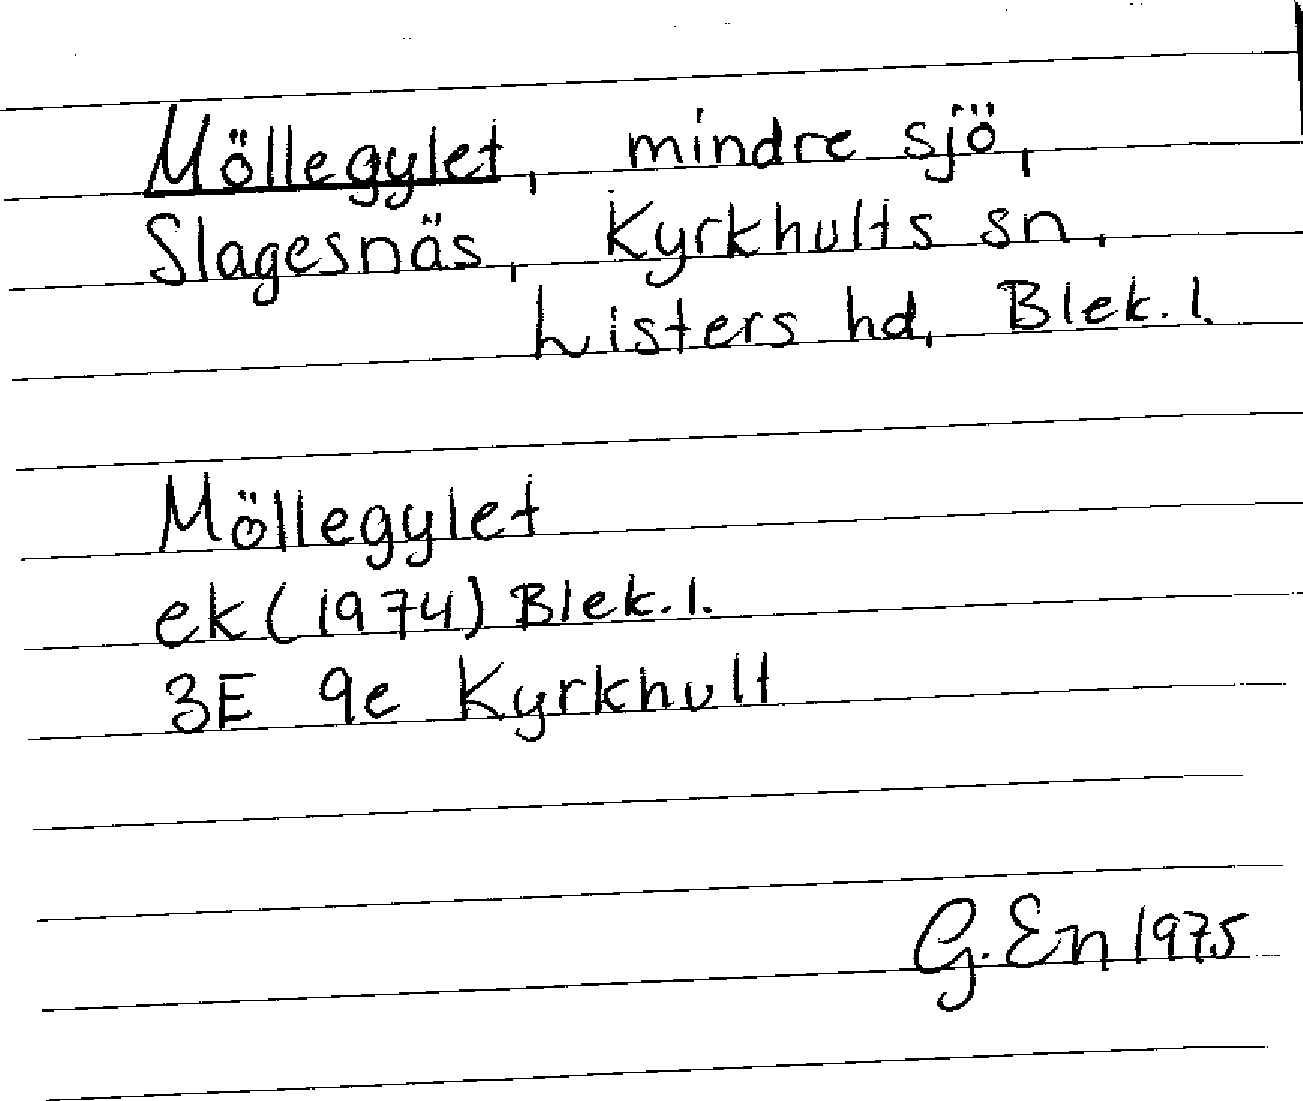 Möllegylet, mindre sjö,
Slagesnäs, Kyrkhults sn,
Listers hd, Blek. l.
Möllegylet
ek (1974) Blek. l.
3E 9e Kyrkhult
G. En 1975